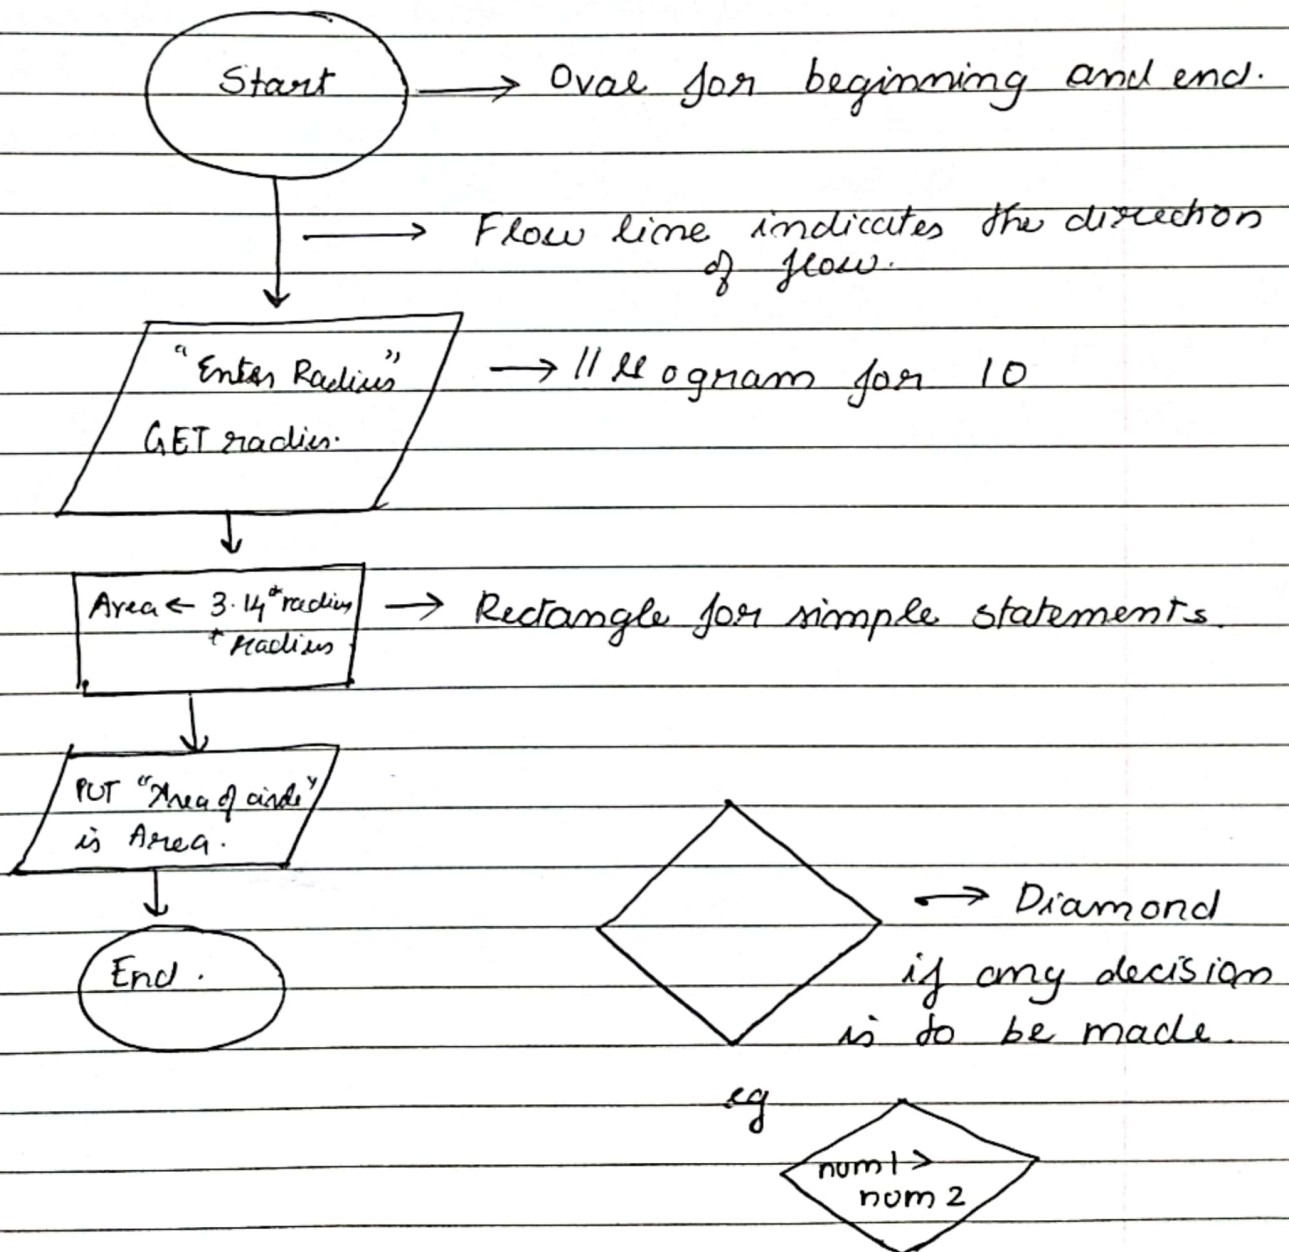 Start → Oval for beginning and end.
→ Flow line indicates the direction
of flow.
"Enter Radius" → ||llogram for IO
GET radius.
Area ← 3.14 * radius → Rectangle for simple statements.
* radius
PUT "Area of circle"
is Area.
→ Diamond
End.
if any decision
is to be made.
eg
num1 >
num2